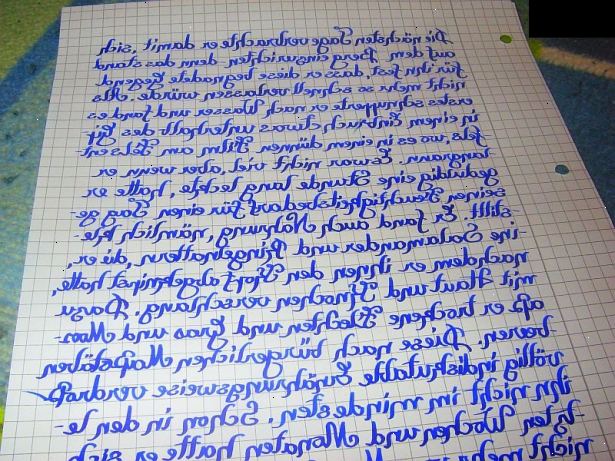 Die nächsten Tage verbrachte er damit, sich
auf dem Berg einzurichten denn das stand
für ihn fest, dass er diese begnadete Gegend
nicht mehr so schnell verlassen würde. Als
erstes schnupperte er nach Wasser und fand es
in einem Einbruch etwas unterhalb des Gip-
fels, wo es in einem dünnen Film am Fels ent-
langrann. Es war nicht viel, aber wenn er
geduldig eine Stunde lang leckte, hatte er
seinen Feuchtigkeitsbedarf für einen Tag ge-
stillt. Er fand auch Nahrung, nämlich kle-
ine Salamander und Ringelnattern, die er,
nachdem er ihnen den Kopf abgeknipst hatte,
mit Haut und Knochen verschlang. Dazu
aß er trockene Flechten und Gras und Moos-
beeren. Diese nach bürgerlichen Maßstäben
völlig indiskutable Ernährungsweise verdroß
ihn nicht im mindesten. Schon in den le-
tzten Wochen und Monaten hatte er sich
nicht mehr